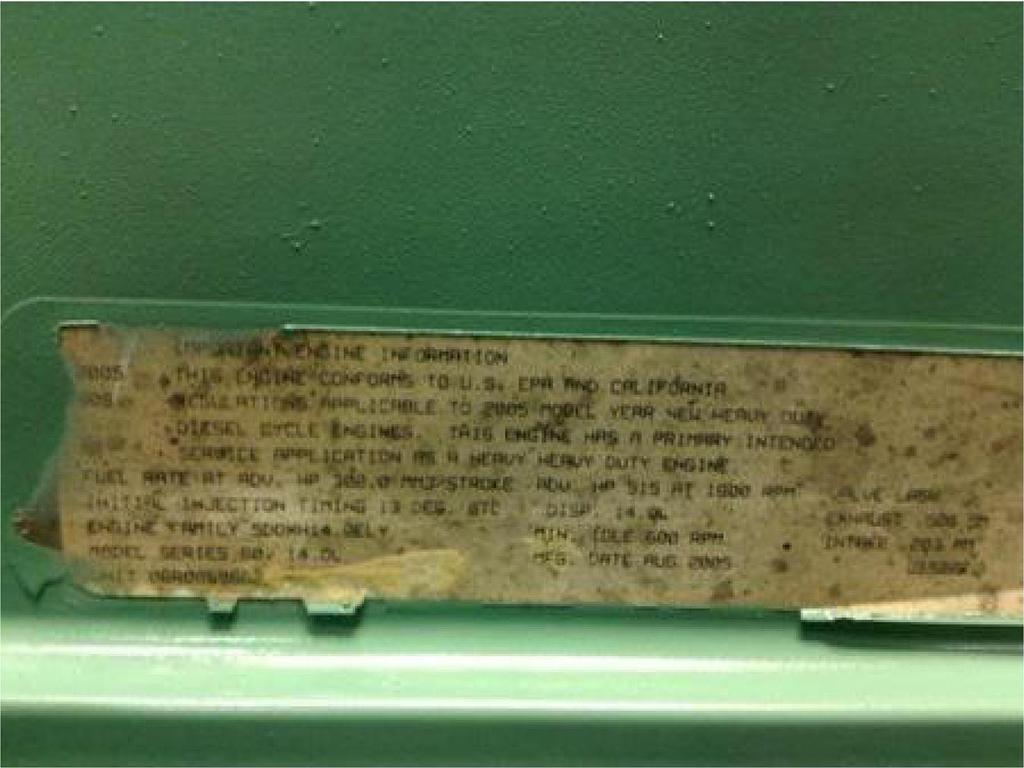 IMPORTANT ENGINE INFORMATION
2005 THIS ENGINE CONFORMS TO U.S. EPA AND CALIFORNIA
REGULATIONS APPLICABLE TO 2005 MODEL YEAR NEW HEAVY DUTY
DIESEL CYCLE ENGINES. THIS ENGINE HAS A PRIMARY INTENDED
SERVICE APPLICATION AS A HEAVY HEAVY DUTY ENGINE
FUEL RATE AT ADV. HP MM3/STROKE ADV. HP 515 AT 1800 RPM
INITIAL INJECTION TIMING 13 DEG. BTC DISP. 14.0L
VALVE LASH
ENGINE FAMILY MIN. IDLE 600 RPM
EXHAUST
MODEL SERIES 60, 14.0L MFG. DATE AUG 2005
INTAKE
UNIT